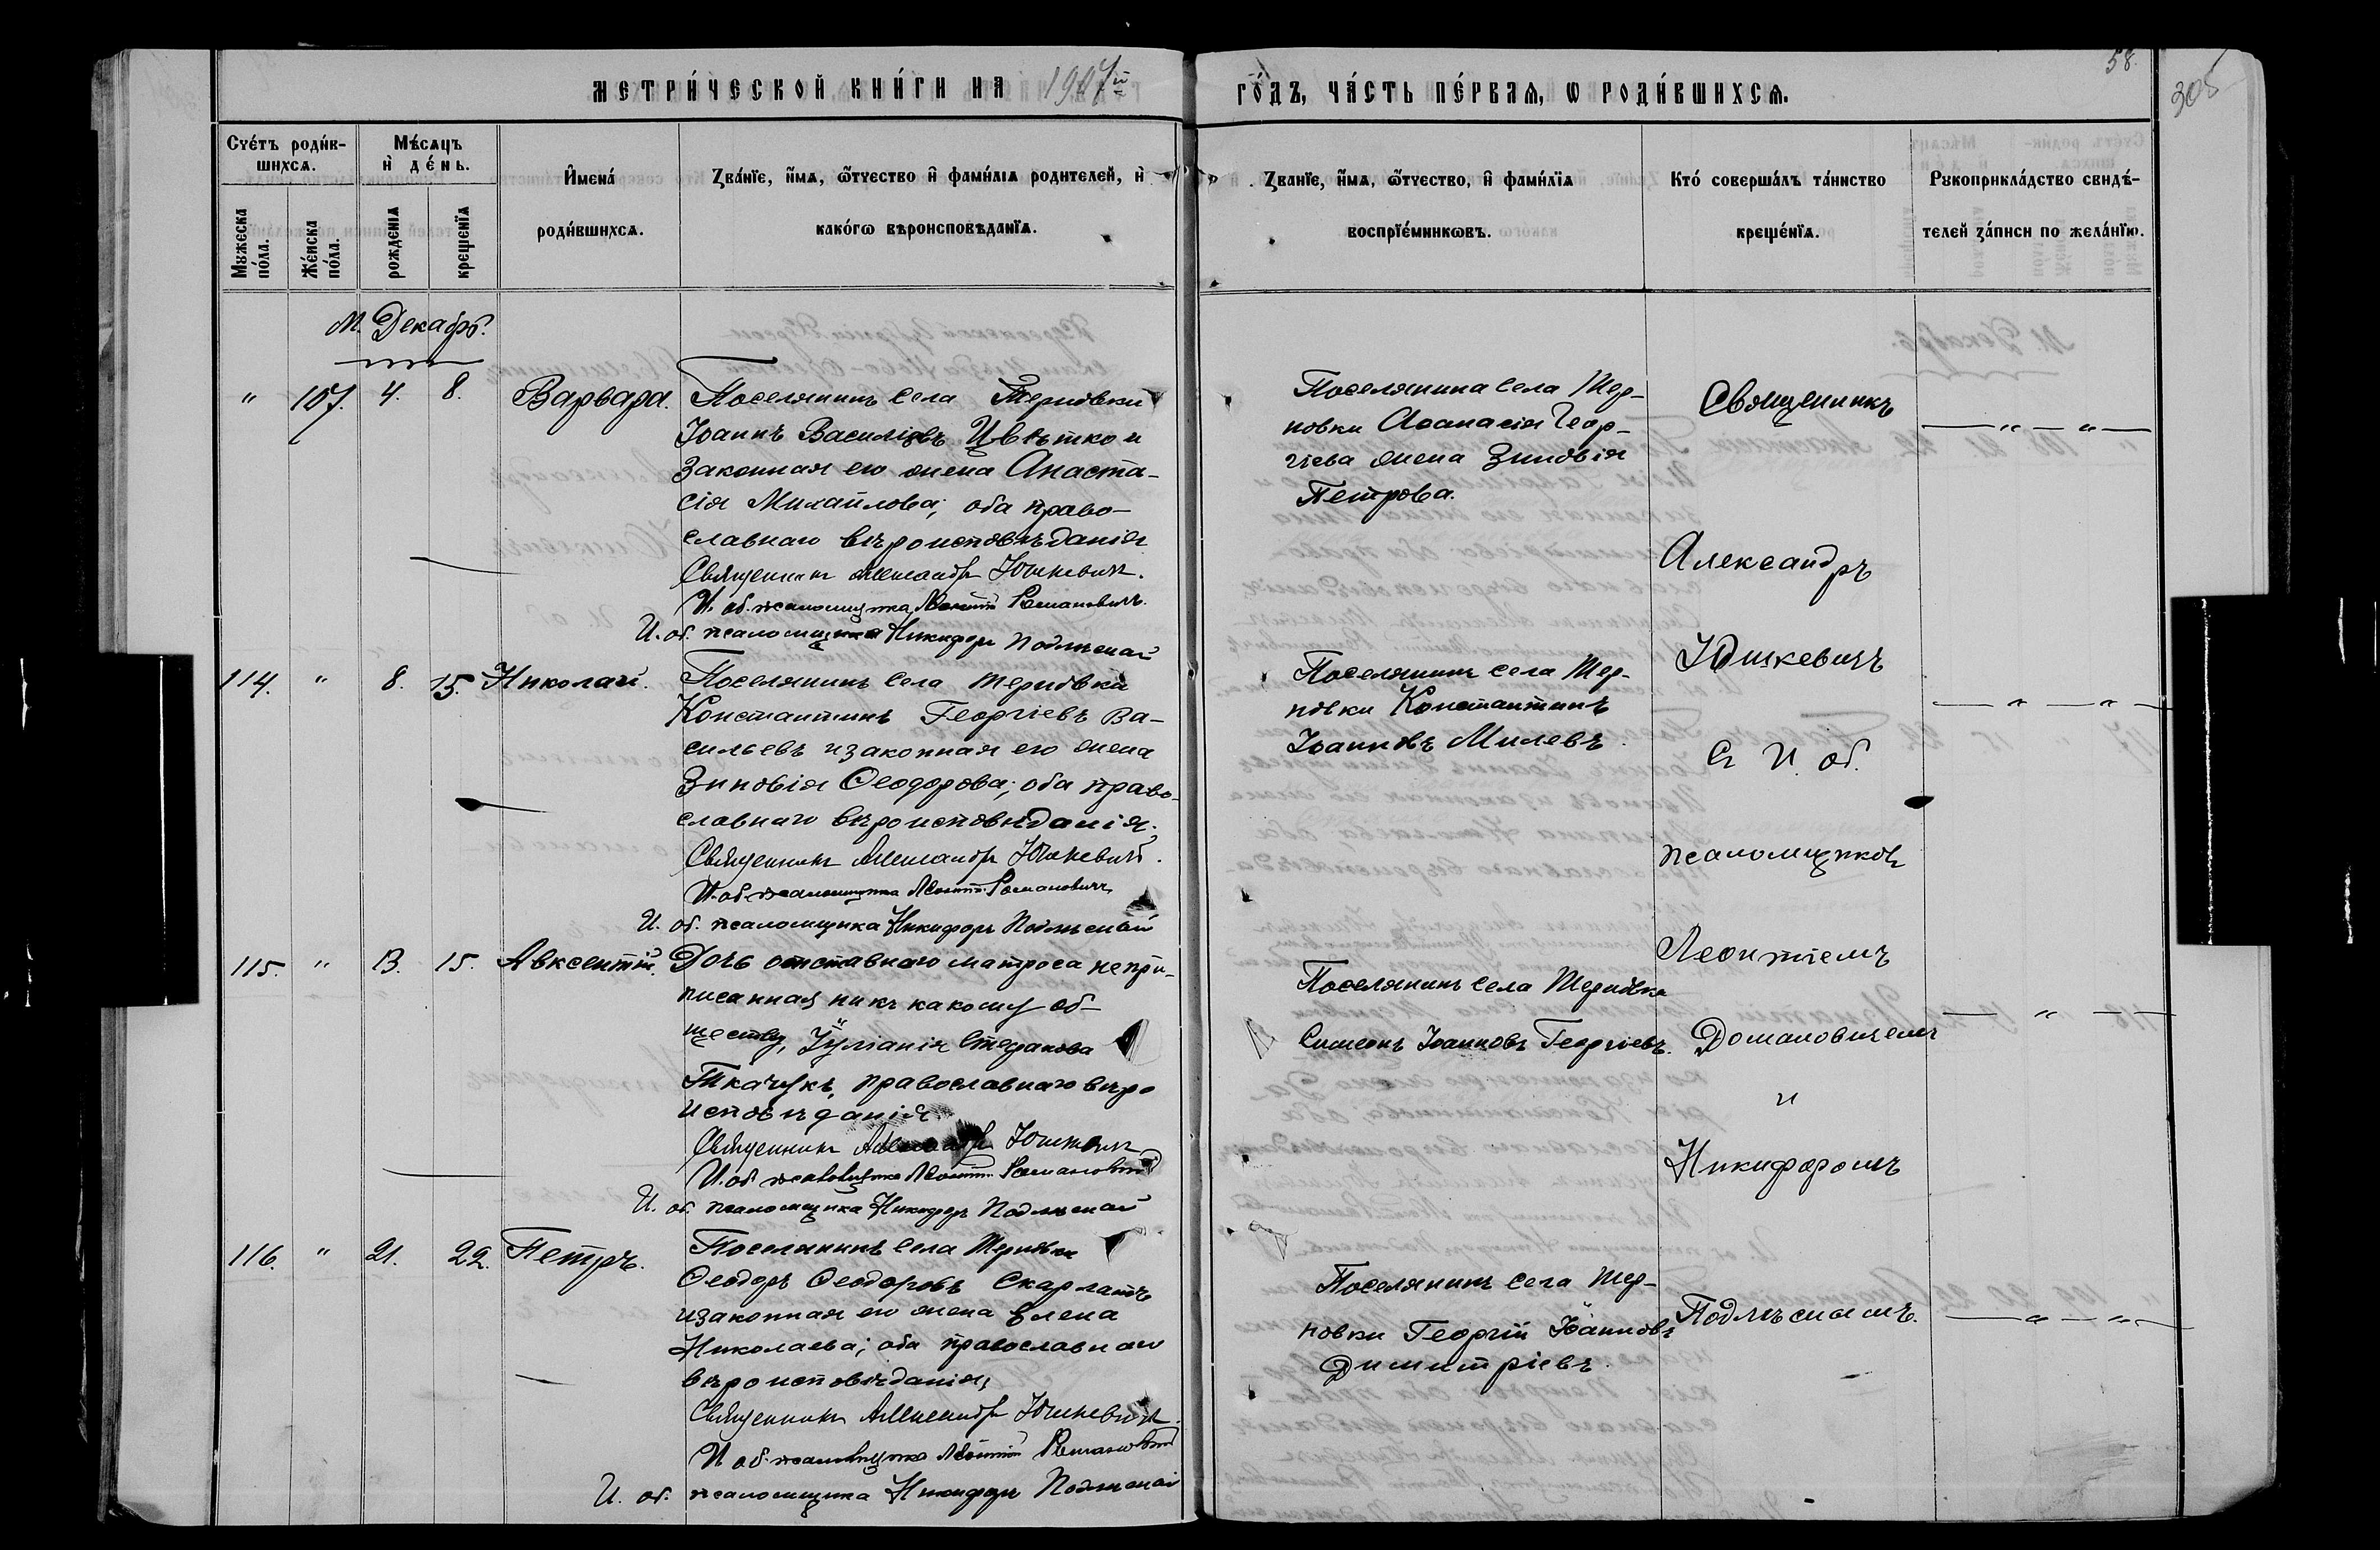 МЕТРИ́ЧЕСКОЙ КНИ́ГИ НА 1907й
ГО́ДЪ, ЧА́СТЬ ПЕ́РВАѦ, Ѡ РОДИ́ВШИХСѦ.
58.
305
Сче́тъ роди́в-
шихсѧ.
Мѣ́сѧцъ
и҆ де́нь.
Мꙋжеска
по́ла.
Же́нска
по́ла.
рожденїѧ
крещенїѧ
И҆мена́
роди́вшихсѧ.
Зва́нїе, и҆́мѧ, ѻ҆́тчество и҆ фами́лїѧ родителей, и҆
како́гѡ вѣроисповѣданїѧ.
Званїе, и҆́мѧ, ѻ҆́тчество, и҆ фами́лїѧ
воспрїе́мникѡвъ.
Кто́ соверша́лъ та́инство
креще́нїѧ.
Рꙋкоприкла́дство свидѣ́-
телей за́писи по жела́нїю.
М. Декабрь.
" 107. 4. 8. Варвара.
Поселянинъ села Терновки
Іоаннъ Василіевъ Цвѣтко и
законная его жена Анаста-
сія Михайлова; оба право-
славнаго вѣроисповѣданія
Священникъ Александръ Юшкевичъ.
И. об. псаломщика Леонтій Романовичъ.
И. об. псаломщика Никифоръ Подлѣсный
Поселянина села Тер-
новки Аѳанасія Геор-
гіева жена Зиновія
Петрова.
Священникъ
Александръ
Юшкевичъ
съ И. об.
псаломщиковъ
Леонтіемъ
Домановичемъ
и
Никифоромъ
Подлѣснымъ.
114. " 8. 15. Николай.
Поселянинъ села Терновки
Константинъ Георгіевъ Ва-
сильевъ и законная его жена
Зиновія Ѳеодорова; оба право-
славнаго вѣроисповѣданія.
Священникъ Александръ Юшкевичъ.
И. об. псаломщика Леонтій Романовичъ
И. об. псаломщика Никифоръ Подлѣсный
Поселянинъ села Тер-
новки Константинъ
Іоанновъ Милевъ.
115. " 13. 15. Авксентій.
Дочь отставнаго матроса непри-
писанная ни къ какому об-
ществу, Іуліанія Стефанова
Ткачукъ, православнаго вѣро
исповѣданія.
Священникъ Александръ Юшкевичъ
И. об. псаломщика Леонтій Романовичъ
И. об. псаломщика Никифоръ Подлѣсный
Поселянинъ села Терновки
Симеонъ Іоанновъ Георгіевъ.
116. " 21. 22. Петръ.
Поселянинъ села Терновки
Ѳеодоръ Ѳеодоровъ Скарлатъ
и законная его жена Елена
Николаева; оба православнаго
вѣроисповѣданія,
Священникъ Александръ Юшкевичъ.
И об. псаломщика Леонтій Романовичъ
И. об. псаломщика Никифоръ Подлѣсный
Поселянинъ села Тер-
новки Георгій Іоанновъ
Димитріевъ.